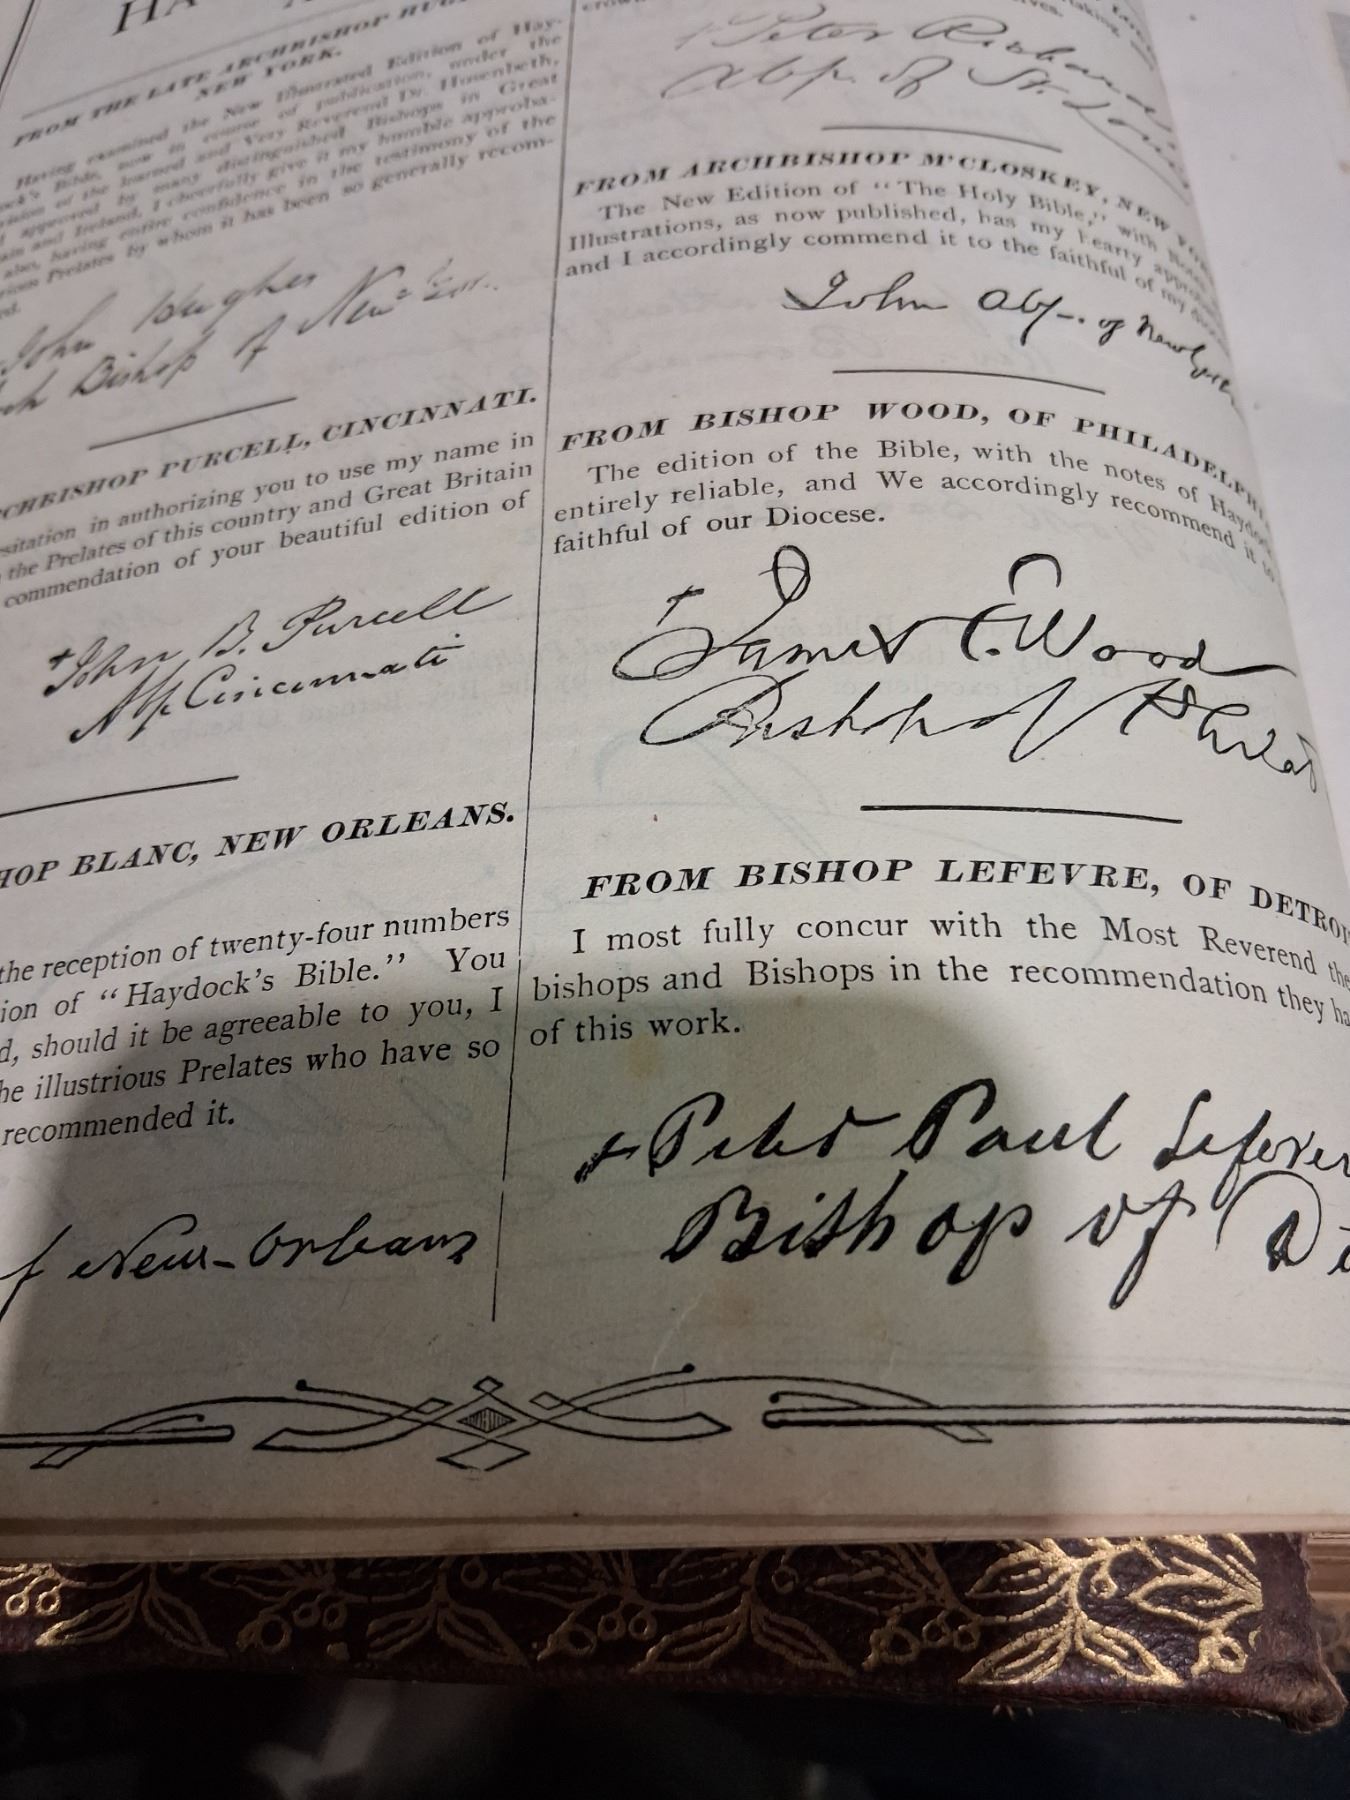 HA
FROM THE LATE ARCHBISHOP
NEW YORK.
Having examined the New Illustrated Edition of Hay-
ock's Bible, now in course of publication, under the
vision of the learned and Very Reverend Dr. Husenbeth,
approved by many distinguished Bishops in Great
ain and Ireland, I cheerfully give it my humble approba-
also, having entire confidence in the testimony of the
rious Prelates by whom it has been so generally recom-
ed.
John Hughes
ch Bishop of New York
CHBISHOP PURCELL, CINCINNATI.
sitation in authorizing you to use my name in
the Prelates of this country and Great Britain
commendation of your beautiful edition of
+John B. Purcell
Abp Cincinnati
HOP BLANC, NEW ORLEANS.
the reception of twenty-four numbers
ion of “Haydock's Bible.” You
d, should it be agreeable to you, I
he illustrious Prelates who have so
recommended it.
f New-Orleans
+Peter Richard
Abp. of St. Louis
FROM ARCHBISHOP M'CLOSKEY, NEW YO
The New Edition of “The Holy Bible,” with Notes
Illustrations, as now published, has my hearty approb
and I accordingly commend it to the faithful of my
John Abp. of New York
FROM BISHOP WOOD, OF PHILADELPHI
The edition of the Bible, with the notes of Haydoc
entirely reliable, and We accordingly recommend it to
faithful of our Diocese.
+James F. Wood
Bishop of Philad
FROM BISHOP LEFEVRE, OF DETROI
I most fully concur with the Most Reverend the
bishops and Bishops in the recommendation they ha
of this work.
+Peter Paul Lefever
Bishop of De